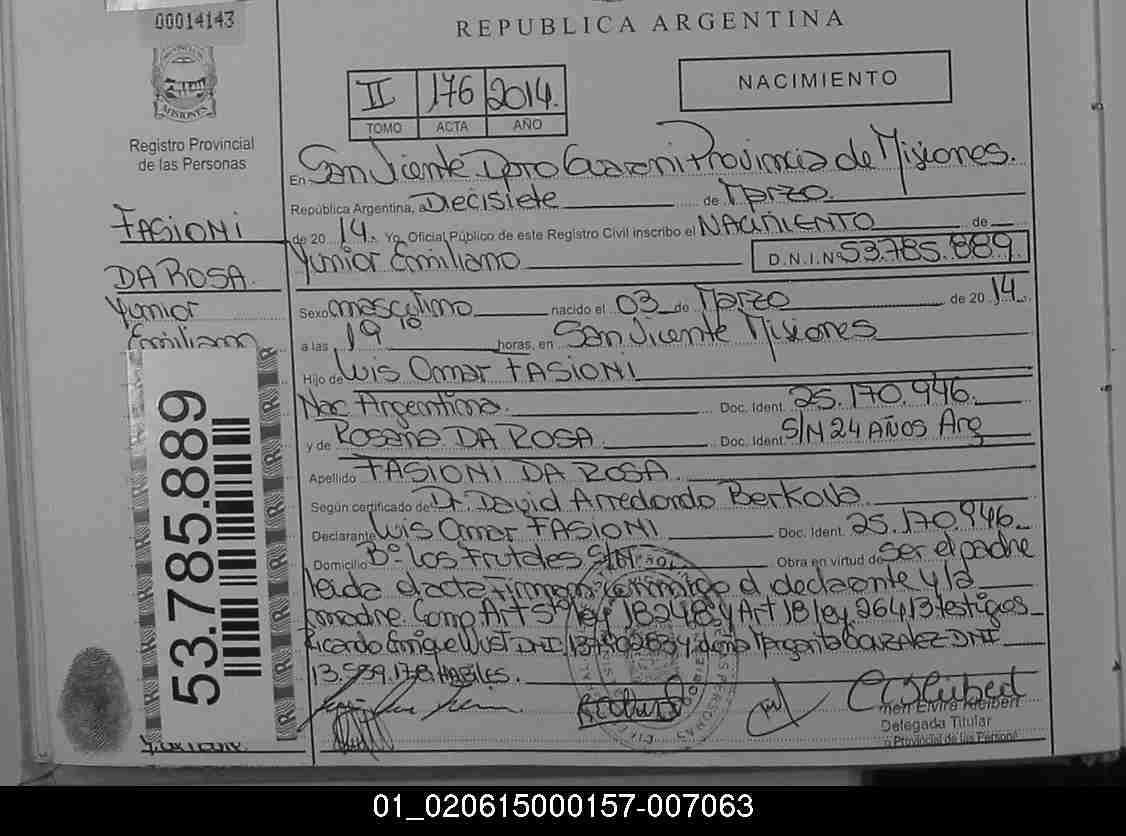 00014143
REPUBLICA ARGENTINA
MISIONES
Registro Provincial
de las Personas
II 176 2014.
TOMO ACTA AÑO
NACIMIENTO
En San Vicente Dpto Guarani Provincia de Misiones.
República Argentina, a Diecisiete de Marzo.
de 20 14. Yo, Oficial Público de este Registro Civil inscribo el NACIMIENTO de
Yunior Emiliano D.N.I.Nº 53.785.889
Sexo masculino nacido el 03 de Marzo de 20 14.
a las 19 10 horas, en San Vicente Misiones
Hijo de Luis Omar FASIONI
Nac Argentina. Doc. Ident. 25.170.946.
y de Rosana DA ROSA. Doc. Ident. S/N 24 AÑOS Arg
Apellido FASIONI DA ROSA.
Según certificado de Dr. David Arredondo Berkova.
Declarante Luis Omar FASIONI Doc. Ident. 25.170.946.
Domicilio Bº Los Frutales S/Nº. Obra en virtud de ser el padre
leida el acta Firman conmigo el declarante y la
madre Comp. Art 5º ley 18248 y Art 18 ley. 26413 testigos
Ricardo Enrique Wust DNI Margarita GONZALEZ DNI
13.559.178 HABILES.
Elvira Kleibert
Delegada Titular
o Provincial de las Personas
FASIONI
DA ROSA.
Yunior
Emiliano
53.785.889
01_020615000157-007063